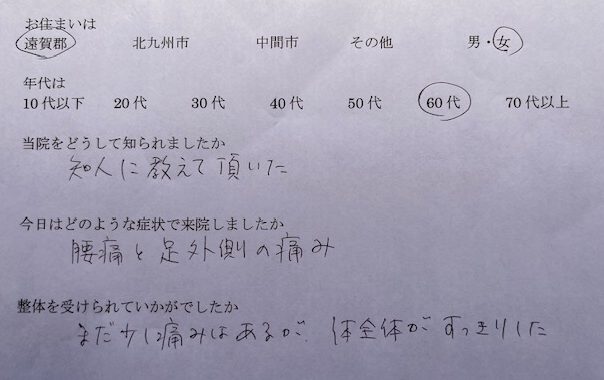 お住まいは
遠賀郡 北九州市 中間市 その他 男・女
年代は
10代以下 20代 30代 40代 50代 60代 70代以上
当院をどうして知られましたか
知人に教えて頂いた
今日はどのような症状で来院しましたか
腰痛と足外側の痛み
整体を受けられていかがでしたか
まだ少し痛みはあるが、体全体がすっきりした